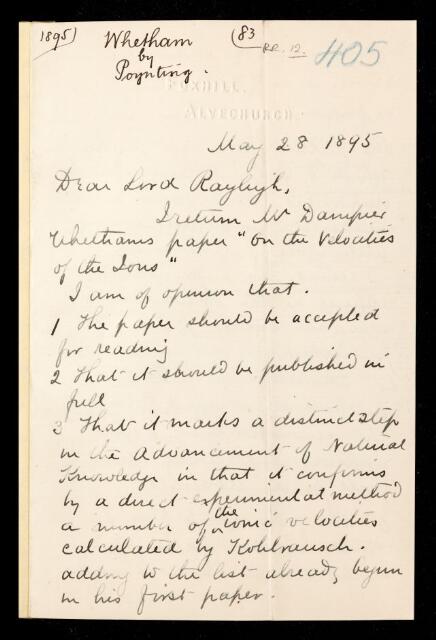 1895)
Whetham
by
Poynting.
(83
RR. 12.
405
FOXHILL,
ALVECHURCH.
May 28 1895
Dear Lord Rayleigh,
I return Mr Dampier
Whethams paper "On the Velocities
of the Ions"
I am of opinion that.
1 The paper should be accepted
for reading
2 That it should be published in
full
3 That it marks a distinct step
in the Advancement of Natural
Knowledge in that it confirms
by a direct experimental method
a number of the ionic velocities
calculated by Kohlrausch.
adding to the list already begun
in his first paper.